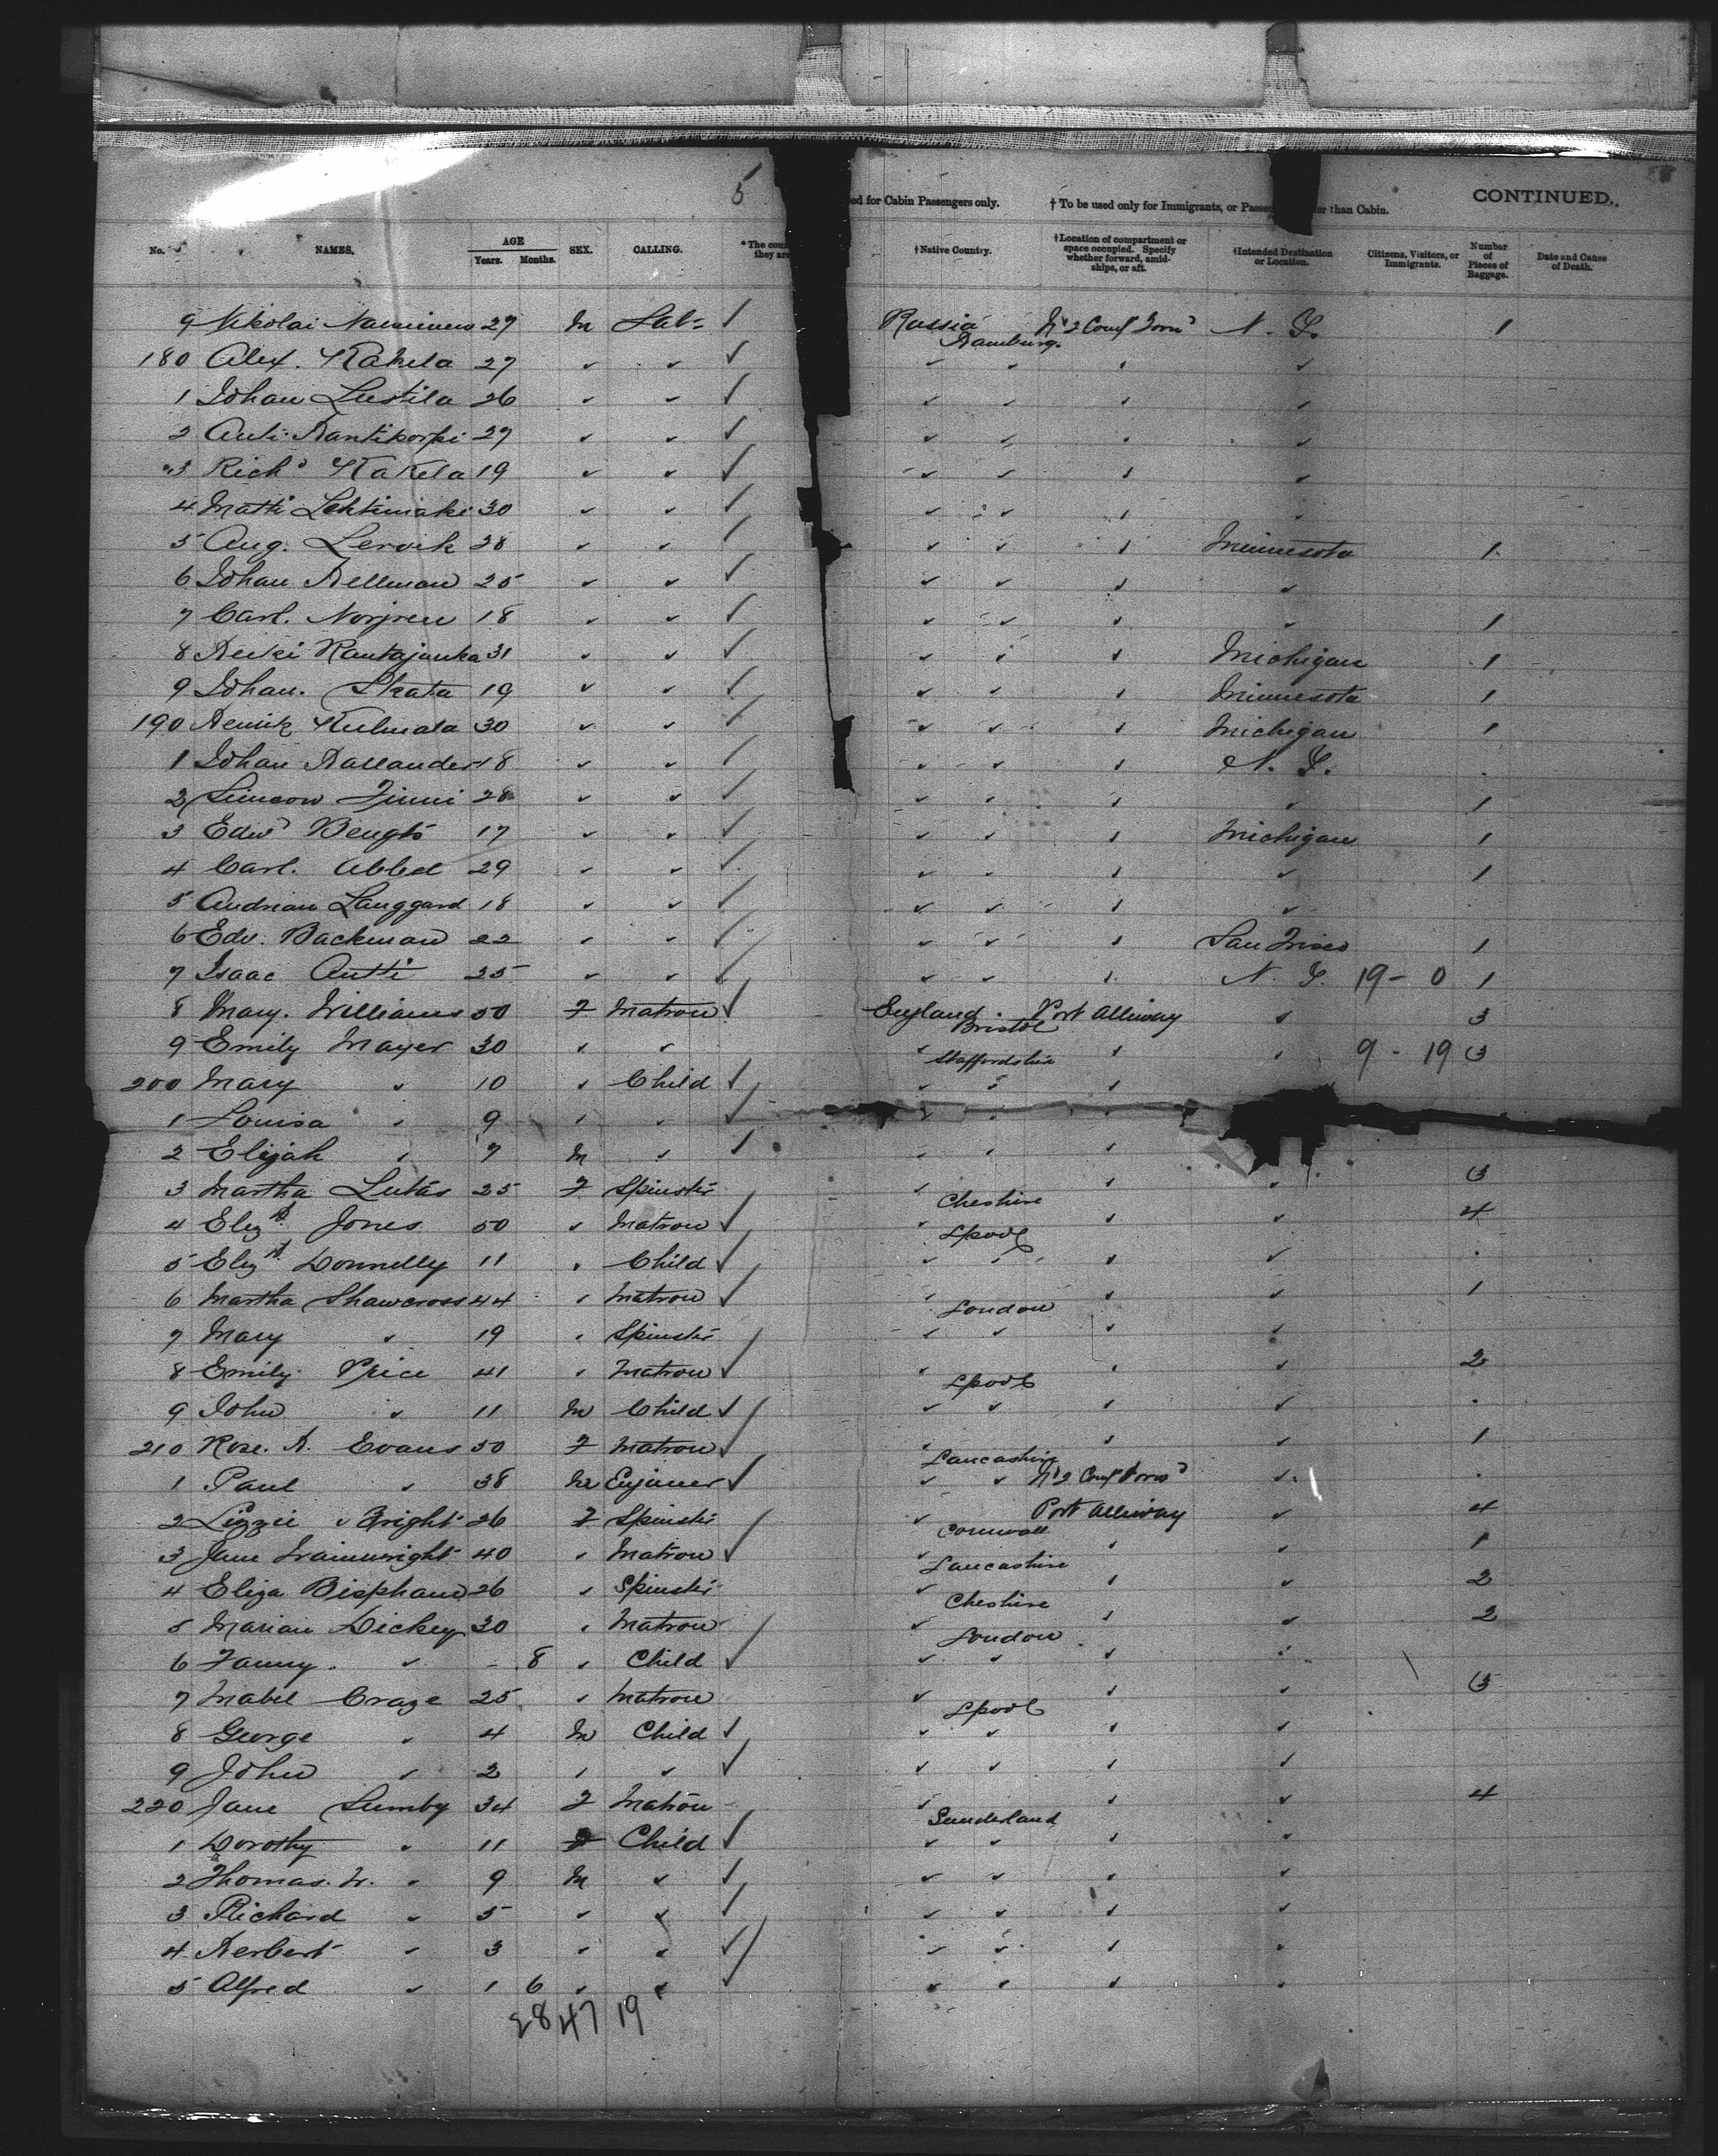 5
ed for Cabin Passengers only. † To be used only for Immigrants, or Passen er than Cabin. CONTINUED.
No. NAMES. AGE Years. Months. SEX. CALLING. *The coun they are †Native Country. †Location of compartment or space occupied. Specify whether forward, amidships, or aft. †Intended Destination or Location. Citizens, Visitors, or Immigrants. Number of Pieces of Baggage. Date and Cause of Death.
9 Nikolai 27 M Lab- ✓ Russia Hamburg. No 2 Compt Forwd N. Y. 1
180 Alex. Kakela 27 ✓ ✓ ✓ ✓ ✓ ✓ ✓
1 Johan Lustila 26 ✓ ✓ ✓ ✓ ✓ ✓ ✓
2 Anti Hantikorpi 27 ✓ ✓ ✓ ✓ ✓ ✓ ✓
3 Richd Kakela 19 ✓ ✓ ✓ ✓ ✓ ✓ ✓
4 Matti Lehtimaki 30 ✓ ✓ ✓ ✓ ✓ ✓ ✓
5 Aug. Lervik 28 ✓ ✓ ✓ ✓ ✓ ✓ Minnesota 1
6 Johan Hellman 25 ✓ ✓ ✓ ✓ ✓ ✓ ✓
7 Carl. Norjren 18 ✓ ✓ ✓ ✓ ✓ ✓ ✓ 1
8 Heiki Rantajanka 31 ✓ ✓ ✓ ✓ ✓ ✓ Michigan 1
9 Johan. Skata 19 ✓ ✓ ✓ ✓ ✓ ✓ Minnesota 1
190 Henrik Kulmala 30 ✓ ✓ ✓ ✓ ✓ ✓ Michigan 1
1 Johan 18 ✓ ✓ ✓ ✓ ✓ ✓ N. Y.
2 Simeon Finni 28 ✓ ✓ ✓ ✓ ✓ ✓ ✓ 1
3 Edwd Bengts 17 ✓ ✓ ✓ ✓ ✓ ✓ Michigan 1
4 Carl. Abbed 29 ✓ ✓ ✓ ✓ ✓ ✓ ✓ 1
5 Andrian Langgard 18 ✓ ✓ ✓ ✓ ✓ ✓ ✓
6 Edw. Backman 22 ✓ ✓ ✓ ✓ ✓ ✓ San Frisco 1
7 Isaac Antti 25 ✓ ✓ ✓ ✓ ✓ ✓ N. Y. 19 - 0 1
8 Mary. Williams 50 F Matron ✓ England. Bristol Port Alliway ✓ 3
9 Emily Mayer 30 ✓ ✓ ✓ Staffordshire ✓ ✓ 9 - 19 3
200 Mary ✓ 10 ✓ Child ✓ ✓ ✓ ✓
1 Louisa ✓ 9 ✓ ✓ ✓ ✓ ✓ ✓
2 Elijah ✓ 7 M ✓ ✓ ✓ ✓ ✓
3 Martha Lutas 25 F Spinstr ✓ Cheshire ✓ ✓ 3
4 Elizth Jones 50 ✓ Matron ✓ ✓ Lpool ✓ ✓ 4
5 Elizth Donnelly 11 ✓ Child ✓ ✓ ✓ ✓ ✓
6 Martha Shawcross 44 ✓ Matron ✓ ✓ London ✓ ✓ 1
7 Mary ✓ 19 ✓ Spinstr ✓ ✓ ✓ ✓
8 Emily Price 41 ✓ Matron ✓ ✓ Lpool ✓ ✓ 2
9 John ✓ 11 M Child ✓ ✓ ✓ ✓ ✓
210 Rose. H. Evans 50 F Matron ✓ ✓ Lancashire ✓ ✓ 1
1 Paul ✓ 38 M Enjineer ✓ ✓ ✓ No 2 Compt Forwd ✓
2 Lizzie Bright 26 F Spinstr ✓ Cornwall Port Alliway ✓ 4
3 Jane Wainwright 40 ✓ Matron ✓ ✓ Lancashire ✓ ✓ 1
4 Eliza Bispham 26 ✓ Spinstr ✓ Cheshire ✓ ✓ 2
5 Marian Dickey 30 ✓ Matron ✓ London ✓ ✓ 2
6 Fanny. ✓ - 8 ✓ Child ✓ ✓ ✓ ✓ ✓
7 Mabel Craze 25 ✓ Matron ✓ Lpool ✓ ✓ 3
8 George ✓ 4 M Child ✓ ✓ ✓ ✓ ✓
9 John ✓ 2 ✓ ✓ ✓ ✓ ✓ ✓ ✓
220 Jane Lumby 34 F Matron ✓ Sunderland ✓ ✓ 4
1 Dorothy ✓ 11 F Child ✓ ✓ ✓ ✓ ✓
2 Thomas. W. ✓ 9 M ✓ ✓ ✓ ✓ ✓ ✓
3 Richard ✓ 5 ✓ ✓ ✓ ✓ ✓ ✓ ✓
4 Herbert ✓ 3 ✓ ✓ ✓ ✓ ✓ ✓ ✓
5 Alfred ✓ 1 6 ✓ ✓ ✓ ✓ ✓ ✓ ✓
28 47 19